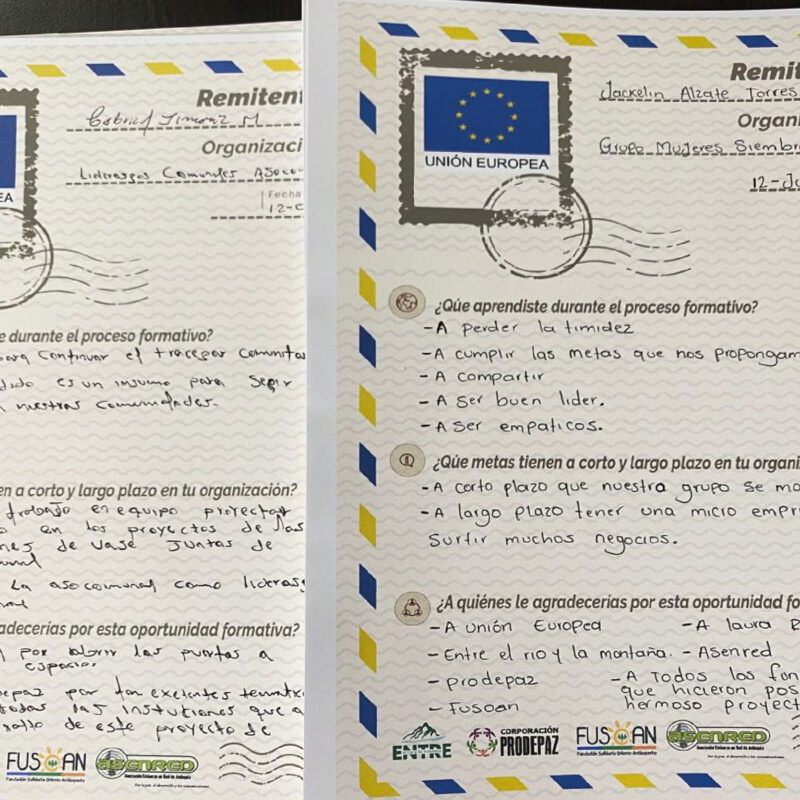 Remitent
Gabriel Jimenez M
Organizaci
Liderasgos Comunales Asoco
Fecha
12-
EA
e durante el proceso formativo?
para continuar el comunita
dido es un insumo para seguir
nuestras comunidades.
en a corto y largo plazo en tu organización?
trabajo en equipo proyectar
en los proyectos de las
nes de vase Juntas de
La asocomunal como liderasg
adecerías por esta oportunidad formativa?
por abrir las puertas a
espacio.
depaz por tan exelentes tematic
todas las instituciones que a
rollo de este proyecto de
FUSOAN
Fundación Solidaria Oriente Antioqueño
asenred
Asociación Emisoras en Red de Antioquia
Por la paz, el desarrollo y las comunicaciones
Remit
Jackelin Alzate Torres
Organi
Grupo Mujeres Siembra
12-Ju
UNIÓN EUROPEA
¿Qúe aprendiste durante el proceso formativo?
-A perder la timidez
-A cumplir las metas que nos propongam
-A compartir
-A ser buen lider.
-A ser empaticos.
¿Qúe metas tienen a corto y largo plazo en tu organi
-A corto plazo que nuestra grupo se mo
-A largo plazo tener una micro empr
surtir muchos negocios.
¿A quiénes le agradecerías por esta oportunidad fo
-A unión Europea -A laura R
-Entre el rio y la montaña. -Asenred
-prodepaz -A Todos los fon
que hicieron pos
-Fusoan hermoso proyect
ENTRE
CORPORACIÓN
PRODEPAZ
FUSOAN
Fundación Solidaria Oriente Antioqueño
asenred
Asociación Emisoras en Red de Antioquia
Por la paz, el desarrollo y las comunicaciones